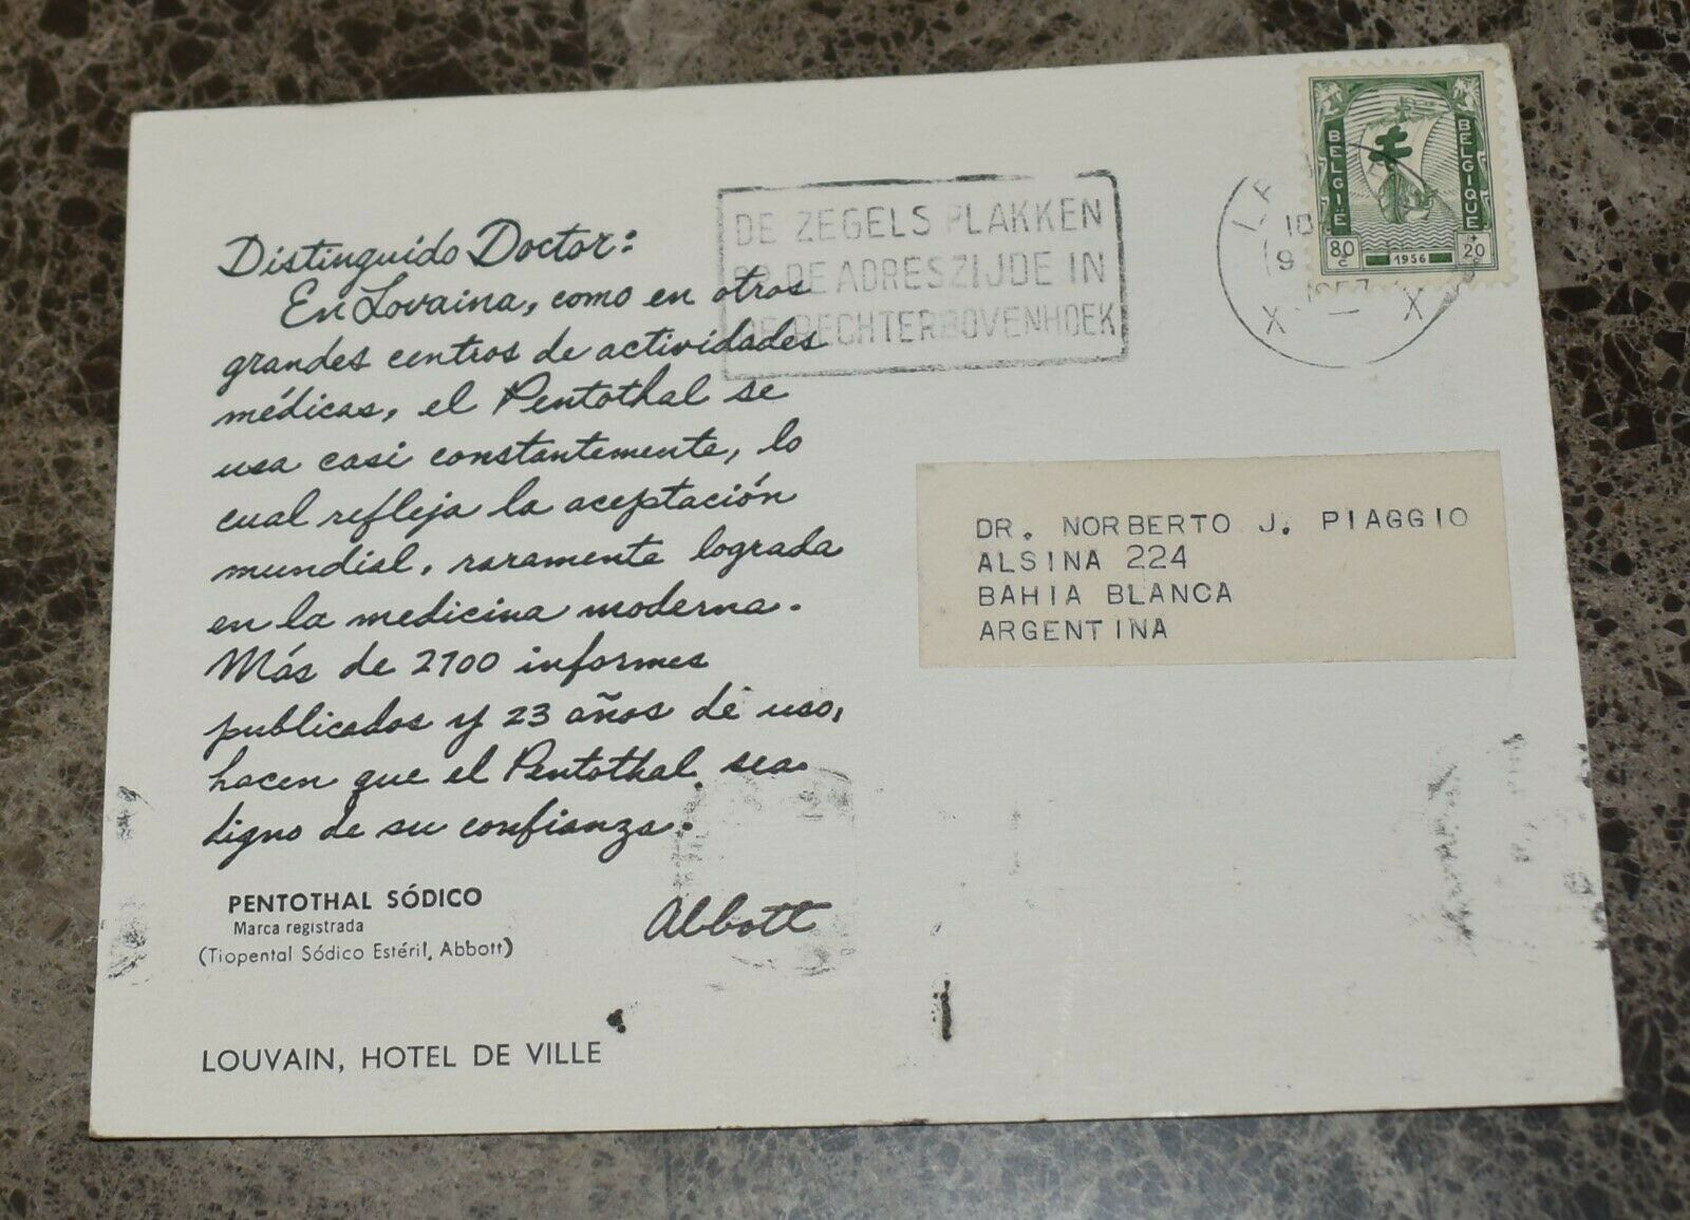 Distinguido Doctor:
En Lovaina, como en otros
grandes centros de actividades
médicas, el Pentothal se
usa casi constantemente, lo
cual refleja la aceptación
mundial, raramente lograda
en la medicina moderna.
Más de 2700 informes
publicados y 23 años de uso,
hacen que el Pentothal sea
digno de su confianza.
Abbott
PENTOTHAL SÓDICO
Marca registrada
(Tiopental Sódico Estéril, Abbott)
LOUVAIN, HOTEL DE VILLE
DE ZEGELS PLAKKEN
OP DE ADRESZIJDE IN
DE RECHTERBOVENHOEK
X — X
BELGIË
BELGIQUE
80 c
1956
+ 20 c
DR. NORBERTO J. PIAGGIO
ALSINA 224
BAHIA BLANCA
ARGENTINA